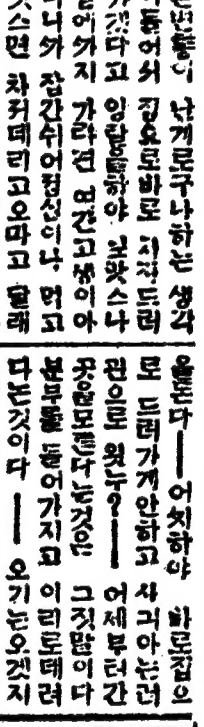 난게로구나하는 생각
들어서 집으로바로
가겟다고 잉탈을하야 보앗스나
에까지 가라면 여간고생이아
니까 잠간쉬어점심이나 먹고
스면 차저데리고오마고 달래
어찌하야 바로집으
로 드려가게안하고 사긔아는려
관으로 왓누?——어제부터간
곳을모른다는것은 그짓말이다
분부를 들어가지고 이리로데려
다논것이다——오기는오겟지